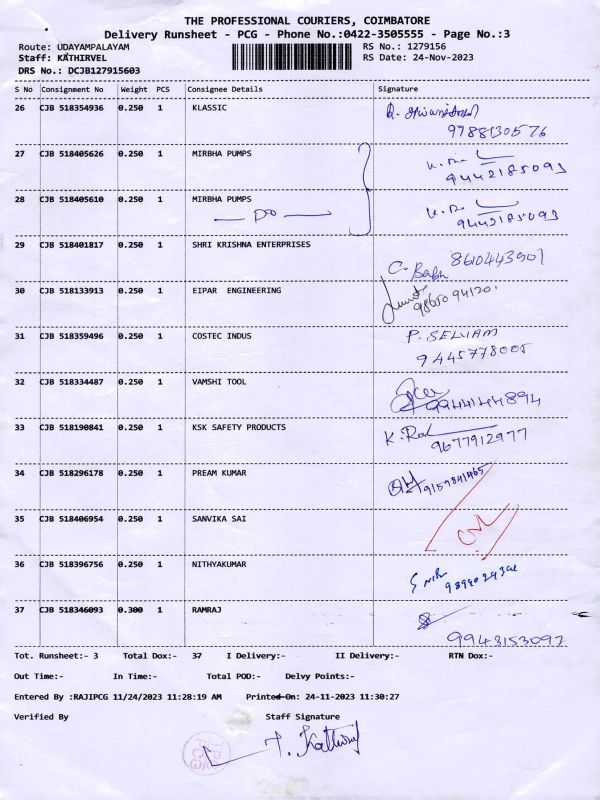 THE PROFESSIONAL COURIERS, COIMBATORE
Delivery Runsheet - PCG - Phone No.:0422-3505555 - Page No.:3
Route: UDAYAMPALAYAM RS No.: 1279156
Staff: KATHIRVEL RS Date: 24-Nov-2023
DRS No.: DCJB127915603
S No Consignment No Weight PCS Consignee Details Signature
26 CJB 518354936 0.250 1 KLASSIC
9788130576
27 CJB 518405626 0.250 1 MIRBHA PUMPS
9442185093
28 CJB 518405610 0.250 1 MIRBHA PUMPS
DO
9442185093
29 CJB 518401817 0.250 1 SHRI KRISHNA ENTERPRISES
C. Babu 8610443901
30 CJB 518133913 0.250 1 EIPAR ENGINEERING
9865094120
31 CJB 518359496 0.250 1 COSTEC INDUS P. SELVAM
9445778005
32 CJB 518334487 0.250 1 VAMSHI TOOL
9944144894
33 CJB 518190841 0.250 1 KSK SAFETY PRODUCTS
9677912977
34 CJB 518296178 0.250 1 PREAM KUMAR
9159841465
35 CJB 518406954 0.250 1 SANVIKA SAI
36 CJB 518396756 0.250 1 NITHYAKUMAR
37 CJB 518346093 0.300 1 RAMRAJ
9943153097
Tot. Runsheet:- 3 Total Dox:- 37 I Delivery:- II Delivery:- RTN Dox:-
Out Time:- In Time:- Total POD:- Delvy Points:-
Entered By :RAJIPCG 11/24/2023 11:28:19 AM Printed On: 24-11-2023 11:30:27
Verified By Staff Signature